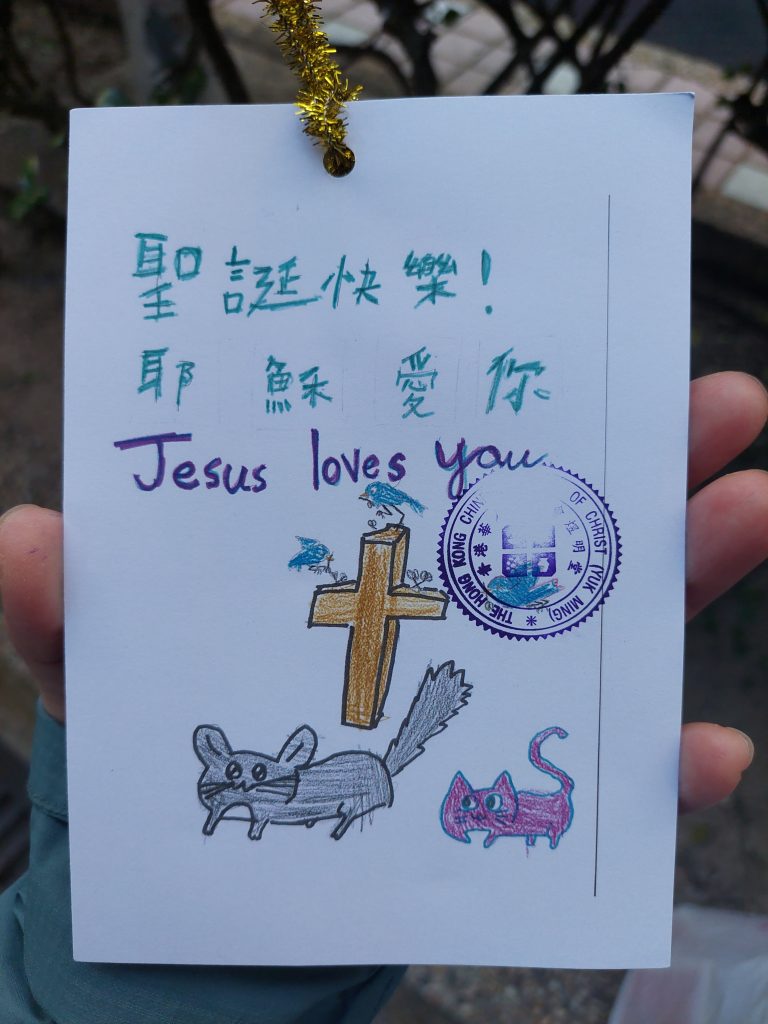 聖誕快樂!
耶穌愛你
Jesus loves you
THE HONG KONG CHIN OF CHRIST (YUK MING)
香港華 煜明堂